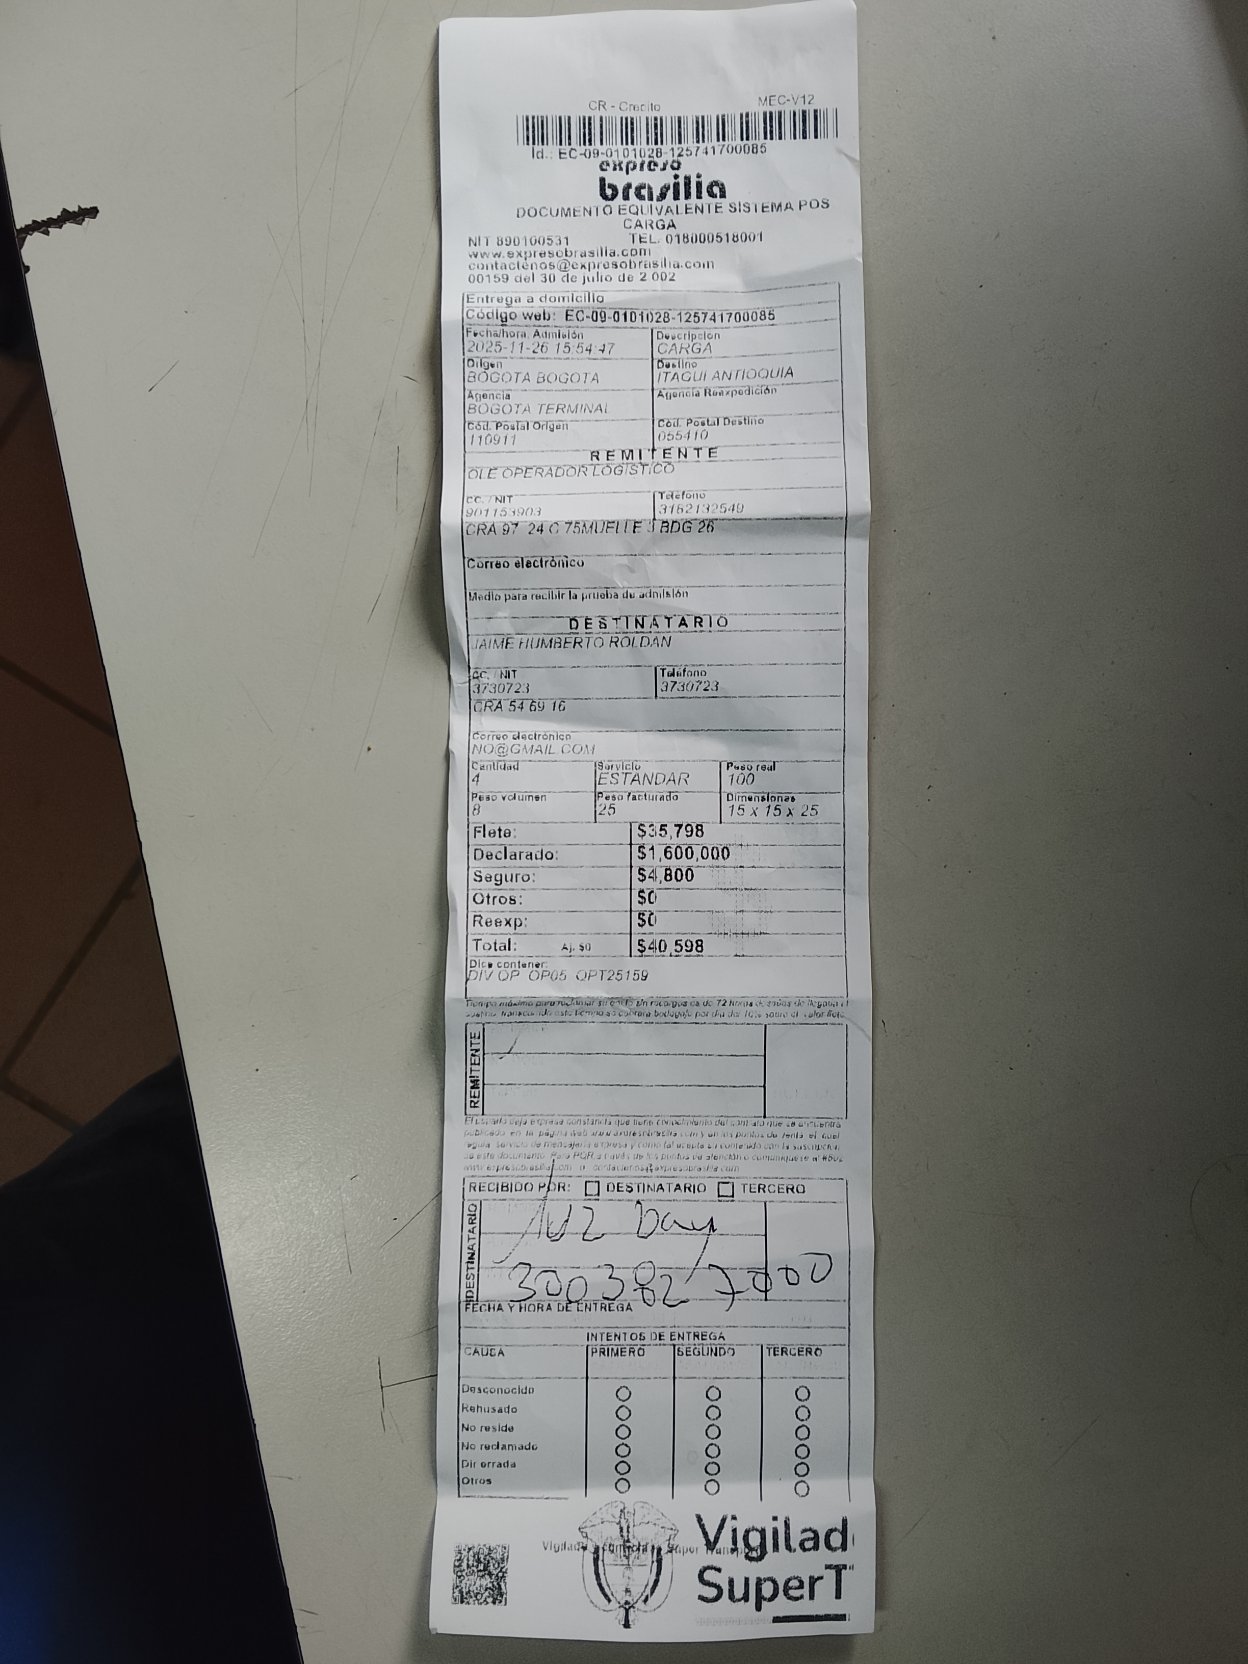 CR - Credito MEC-V12
Id.: EC-09-0101028-125741700085
expreso
brasilia
DOCUMENTO EQUIVALENTE SISTEMA POS
CARGA
NIT 890100531 TEL. 018000518001
www.expresobrasilia.com
contactenos@expresobrasilia.com
00159 del 30 de julio de 2.002
Entrega a domicilio
Código web: EC-09-0101028-125741700085
Fecha/hora Admisión Descripción
2025-11-26 15:54:47 CARGA
Origen Destino
BOGOTA BOGOTA ITAGUI ANTIOQUIA
Agencia Agencia Reexpedición
BOGOTA TERMINAL
Cód. Postal Origen Cód. Postal Destino
110911 055410
REMITENTE
OLE OPERADOR LOGISTICO
CC. / NIT Teléfono
901153903 3162132549
CRA 97 24 C 75MUELLE 3 BDG 26
Correo electrónico
Medio para recibir la prueba de admisión
DESTINATARIO
JAIME HUMBERTO ROLDAN
CC. / NIT Teléfono
3730723 3730723
CRA 54 69 16
Correo electrónico
NO@GMAIL.COM
Cantidad Servicio Peso real
4 ESTANDAR 100
Peso volumen Peso facturado Dimensiones
8 25 15 x 15 x 25
Flete: $35,798
Declarado: $1,600,000
Seguro: $4,800
Otros: $0
Reexp: $0
Total: Aj. $0 $40,598
Dice contener:
DIV OP OP05 OPT25159
REMITENTE
RECIBIDO POR: DESTINATARIO TERCERO
DESTINATARIO
luz
300 382 7000
FECHA Y HORA DE ENTREGA
INTENTOS DE ENTREGA
CAUSA PRIMERO SEGUNDO TERCERO
Desconocido
Rehusado
No reside
No reclamado
Dir errada
Otros
Vigilad
SuperT